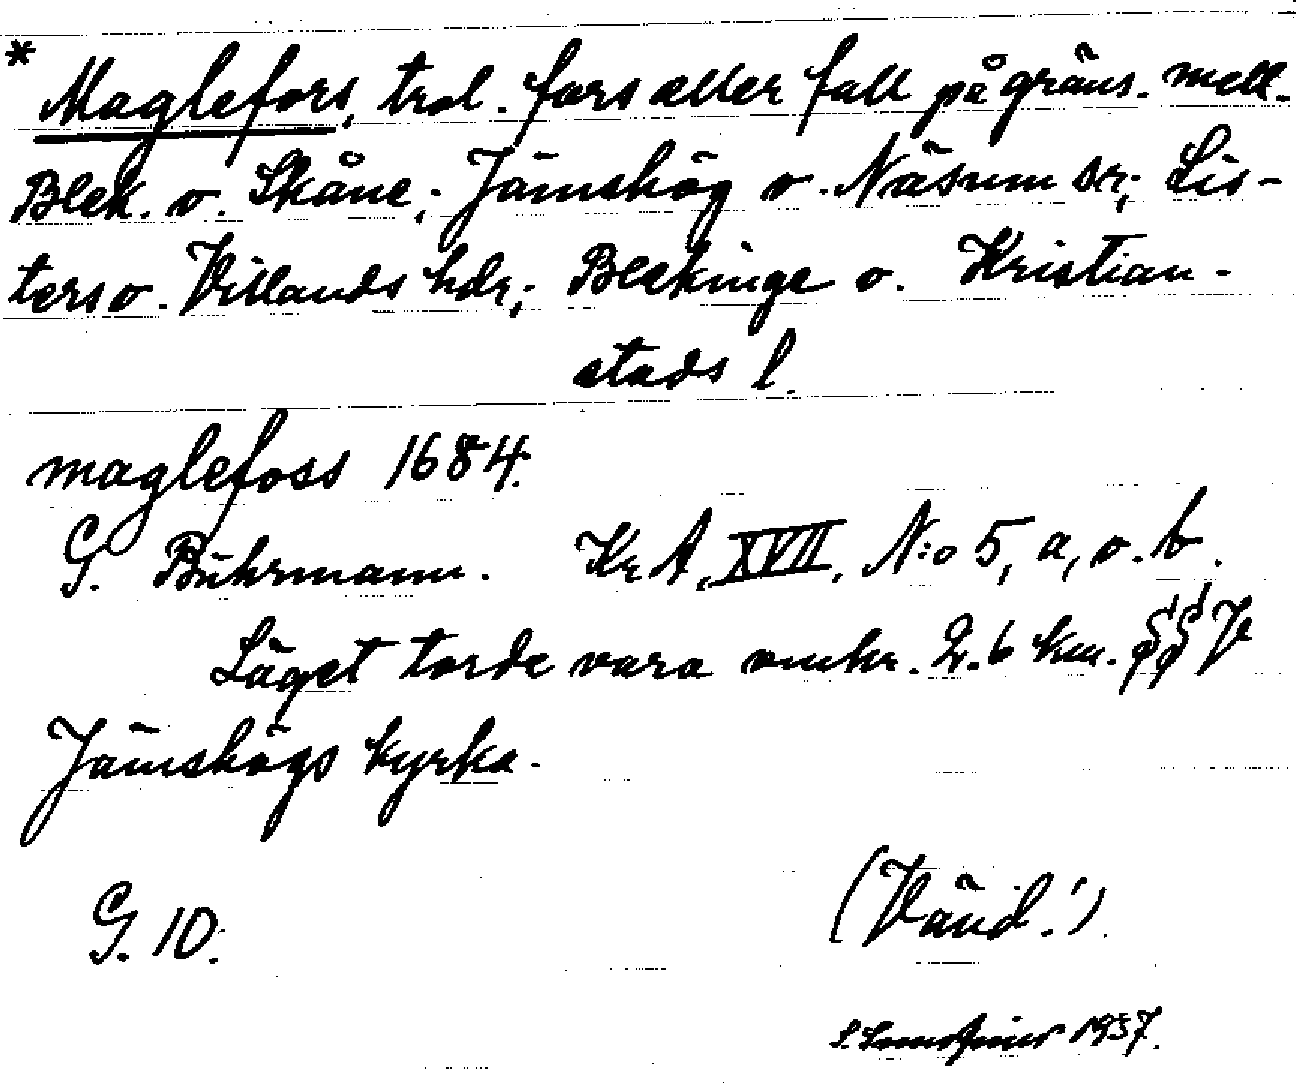 * Maglefors, trol. fors eller fall på gräns. mell.
Blek. o. Skåne; Jämshög o. Näsum sr; Lis-
ters o. Villands hdr; Blekinge o. Kristian-
stads l.
maglefoss 1684.
G. Buhrmann. Kr A, XVII, N:o 5, a, o. b.
Läget torde vara omkr. 2.6 km. V
Jämshögs kyrka.
G. 10.
(Vänd!)
1937.